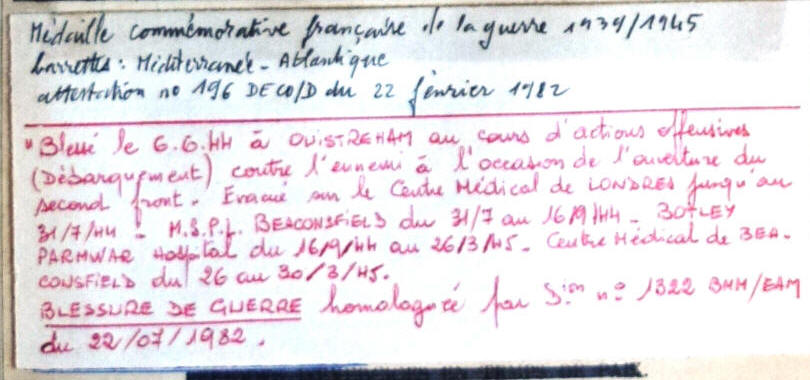 Médaille commémorative française de la guerre 1939/1945
barrettes : Méditerranée - Atlantique
attestation no 196 DECO/D du 22 février 1982
"Blessé le 6.6.44 à OUISTREHAM au cours d'actions offensives
(Débarquement) contre l'ennemi à l'occasion de l'ouverture du
second front. Evacué sur le Centre Médical de LONDRES jusqu'au
31/7/44 - M.S.P.L. BEACONSFIELD du 31/7 au 16/9/44 - BOTLEY
PARMWAR Hospital du 16/9/44 au 26/3/45. Centre Médical de BEA-
CONSFIELD du 26 au 30/3/45.
BLESSURE DE GUERRE homologuée par Dion no 1322 BMM/EAM
du 22/07/1982.